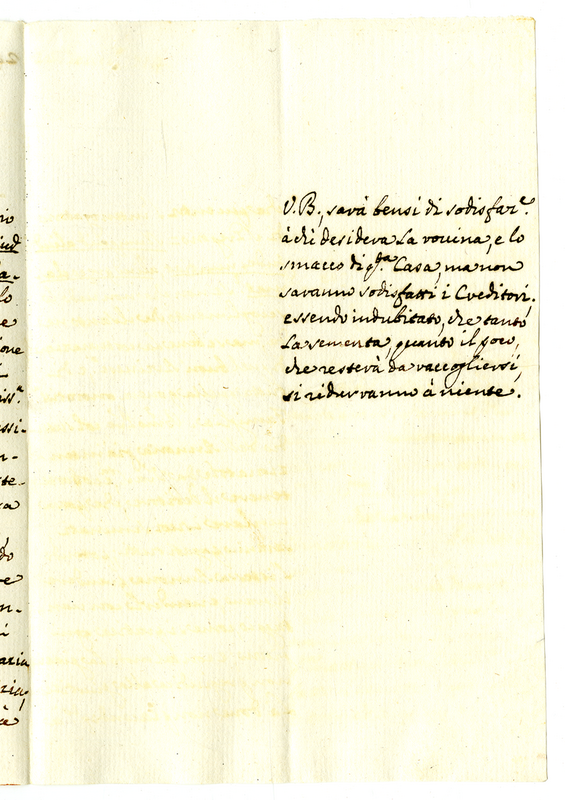 V. B., sarà bensi di sodisfar.e
à chi desidera La rovina, e lo
smacco di q.ta Casa, ma non
saranno sodisfatti i Creditori.
essendo indubitato, che tanto
La sementa, quanto il poco,
che resterà da raccogliersi,
si ridurranno à niente.